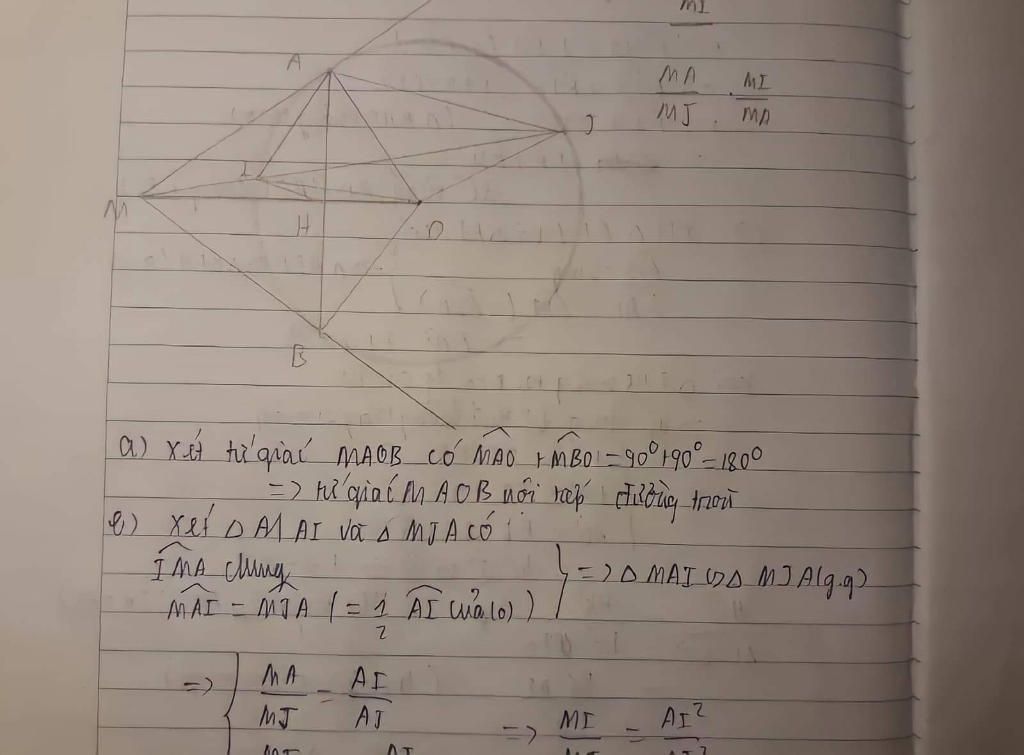 MI
MA/MJ . MI/MA
A
J
I
M
H
O
B
a) xét tứ giác MAOB có MAO + MBO = 90° + 90° = 180°
=> tứ giác MAOB nội tiếp đường tròn
b) xét △ MAI và △ MJA có
IMA chung
MAI = MJA (= 1/2 AI của (O)) } => △ MAI ∽ △ MJA (g.g)
=> { MA/MJ = AI/AJ
=> MI = AI²